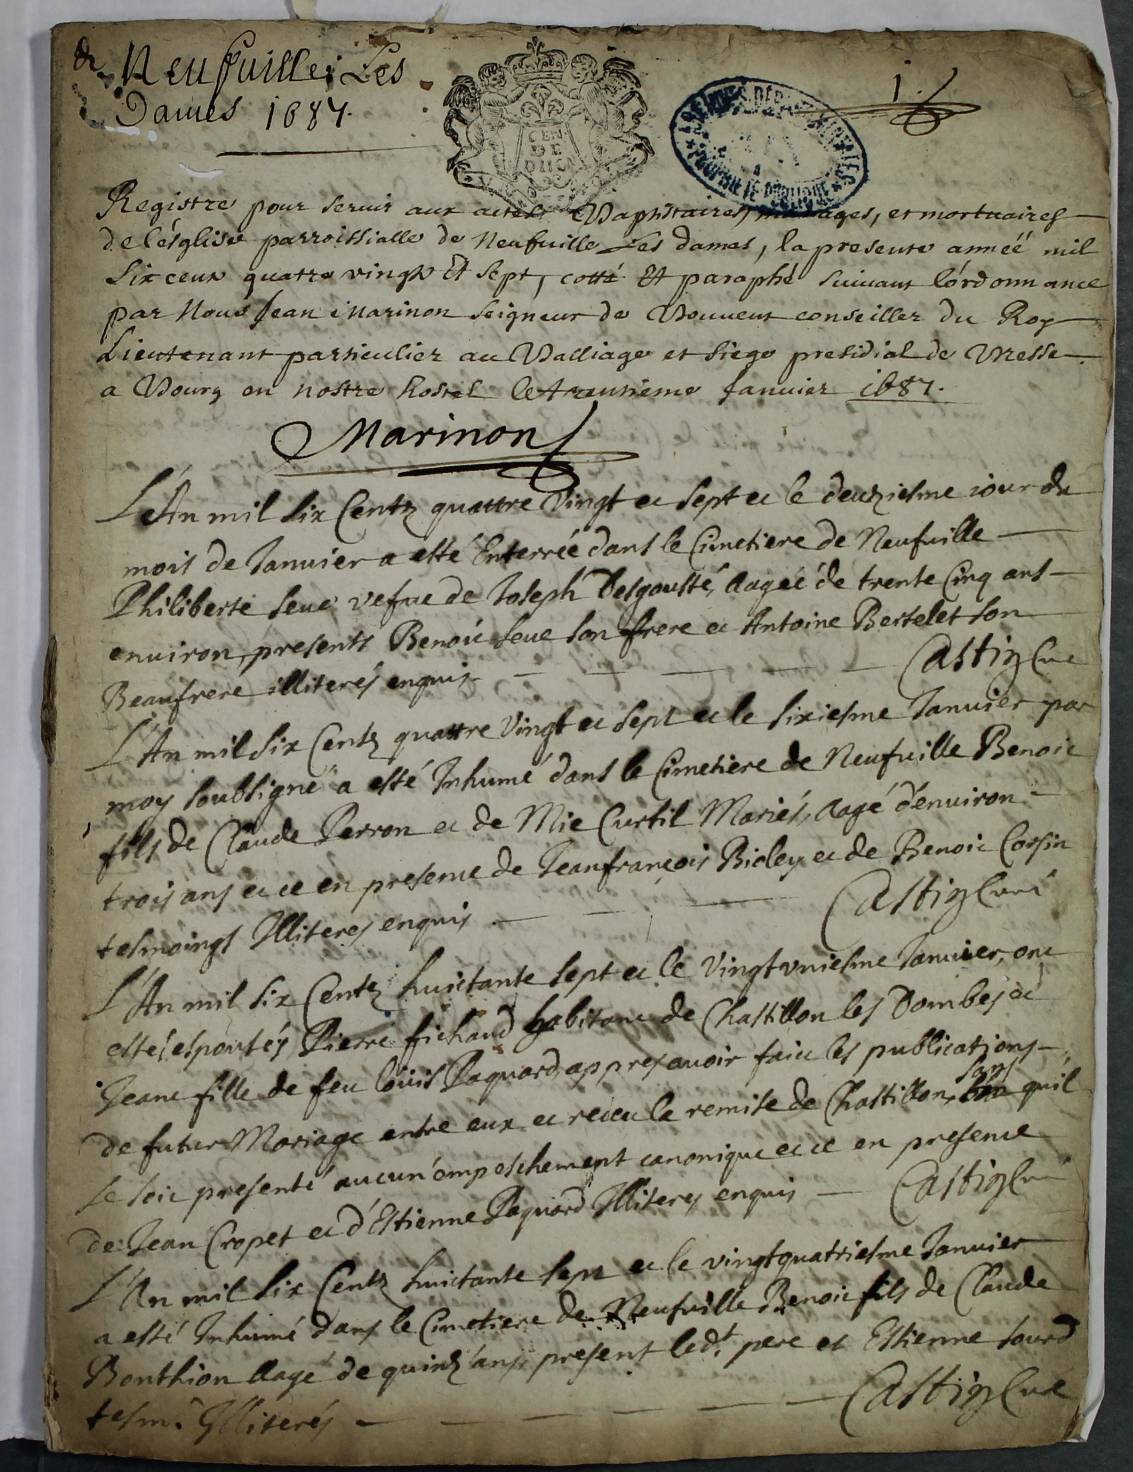 de Neufuille Les
Dames 1687.
1.
GEN
DE
DIION
ARCHIVES DEPARTEMENTALES
PROPRIETE PUBLIQUE
Registre pour seruir aux actes Baptistaires, mariages, et mortuaires
de l'église parroissialle de Neufuille Les dames, la presente année mil
six cens quatre vingts Et sept, cotté Et paraphé suiuant l'ordonnance
par Nous Jean Marinon seigneur de Bouuent conseiller du Roy
Lieutenant particulier au Balliage et siege presidial de Bresse
a Bourg en nostre hostel le trentieme Januier 1687.
Marinon
L'An mil six Centz quattre Vingt et sept et le deuziesme iour du
mois de Januier a esté Enterrée dans le Cimetiere de Neufuille
Philiberte seue vefue de Joseph Desgoutte, aageé de trente Cinq ans
enuiron, presents Benoit seue son frere et Antoine Bertelet son
Beaufrere illiterés enquis Castin Curé
L'An mil six Centz quattre Vingt et sept et le sixiesme Januier par
moy soubsigné a esté Inhumé dans le Cimetiere de Neufuille Benoit
fils de Claude Perron et de Mie Curtil Mariés, aagé d'enuiron
trois ans et ce en presence de Jeanfrançois Bioley et de Benoit Corsin
tesmoings Illiterés enquis Castin Curé
L'An mil six Centz huictante sept et le Vingtvniesme Januier, ont
estés espousés Pierre fichaud habitant de Chastillon les Dombes et
Jeane fille de feu loüis Paquard appres auoir faict les publications
de futur Mariage entre eux et receu la remise de Chastillon, sans quil
se soit presenté aucun empeschement canonique et ce en presence
de Jean Cropet et d'Estienne Paquard Illiterés enquis Castin Curé
L'An mil six Centz huictante sept et le vingtquatriesme Januier
a esté Inhumé dans le Cimetiere de Neufuille Benoit fils de Claude
Bonthion aagé de quinz ans, présent led.t pere et Estienne sourd
tesm. Illiterés Castin Curé